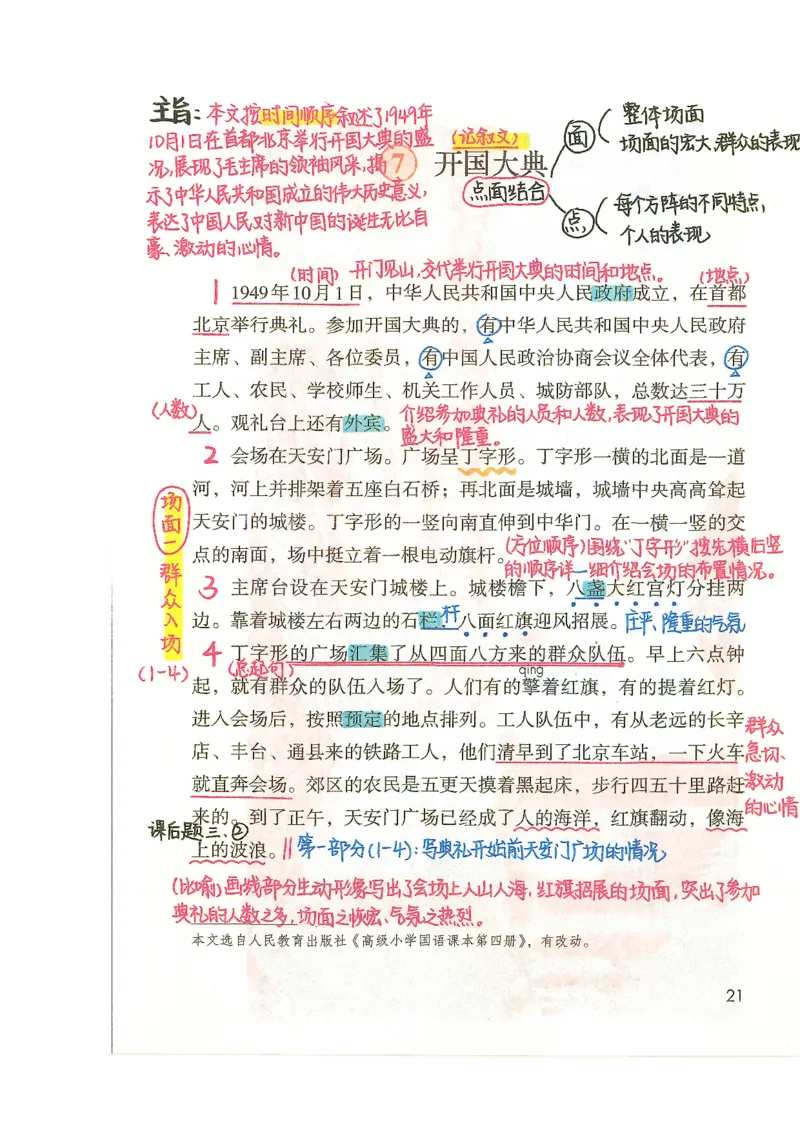 主旨：本文按时间顺序叙述了1949年
10月1日在首都北京举行开国大典的盛
况,展现了毛主席的领袖风采,揭
示了中华人民共和国成立的伟大历史意义,
表达了中国人民对新中国的诞生无比自
豪、激动的心情。
(记叙文)
7 开国大典
点面结合
面
整体场面
场面的宏大,群众的表现
点
每个方阵的不同特点,
个人的表现
(时间) 开门见山,交代举行开国大典的时间和地点。 (地点)
1 1949年10月1日，中华人民共和国中央人民政府成立，在首都
北京举行典礼。参加开国大典的，有中华人民共和国中央人民政府
主席、副主席、各位委员，有中国人民政治协商会议全体代表，有
工人、农民、学校师生、机关工作人员、城防部队，总数达三十万
(人数)
人。观礼台上还有外宾。
介绍参加典礼的人员和人数,表现了开国大典的
盛大和隆重。
2 会场在天安门广场。广场呈丁字形。丁字形一横的北面是一道
河，河上并排架着五座白石桥；再北面是城墙，城墙中央高高耸起
天安门的城楼。丁字形的一竖向南直伸到中华门。在一横一竖的交
点的南面，场中挺立着一根电动旗杆。
(方位顺序)围绕"丁字形"按先横后竖
的顺序详细介绍会场的布置情况。
场面一群众入场
(1-4)
3 主席台设在天安门城楼上。城楼檐下，八盏大红宫灯分挂两
边。靠着城楼左右两边的石栏，八面红旗迎风招展。
杆
庄严、隆重的气氛
4 丁字形的广场汇集了从四面八方来的群众队伍。早上六点钟
(总起句)
qíng
起，就有群众的队伍入场了。人们有的擎着红旗，有的提着红灯。
进入会场后，按照预定的地点排列。工人队伍中，有从老远的长辛
店、丰台、通县来的铁路工人，他们清早到了北京车站，一下火车
就直奔会场。郊区的农民是五更天摸着黑起床，步行四五十里路赶
来的。到了正午，天安门广场已经成了人的海洋，红旗翻动，像海
上的波浪。
群众
急切、
激动
的心情
课后题三.②
‖第一部分(1-4):写典礼开始前天安门广场的情况
(比喻)画线部分生动形象写出了会场上人山人海,红旗招展的场面,突出了参加
典礼的人数之多,场面之恢宏、气氛之热烈。
本文选自人民教育出版社《高级小学国语课本第四册》，有改动。
21